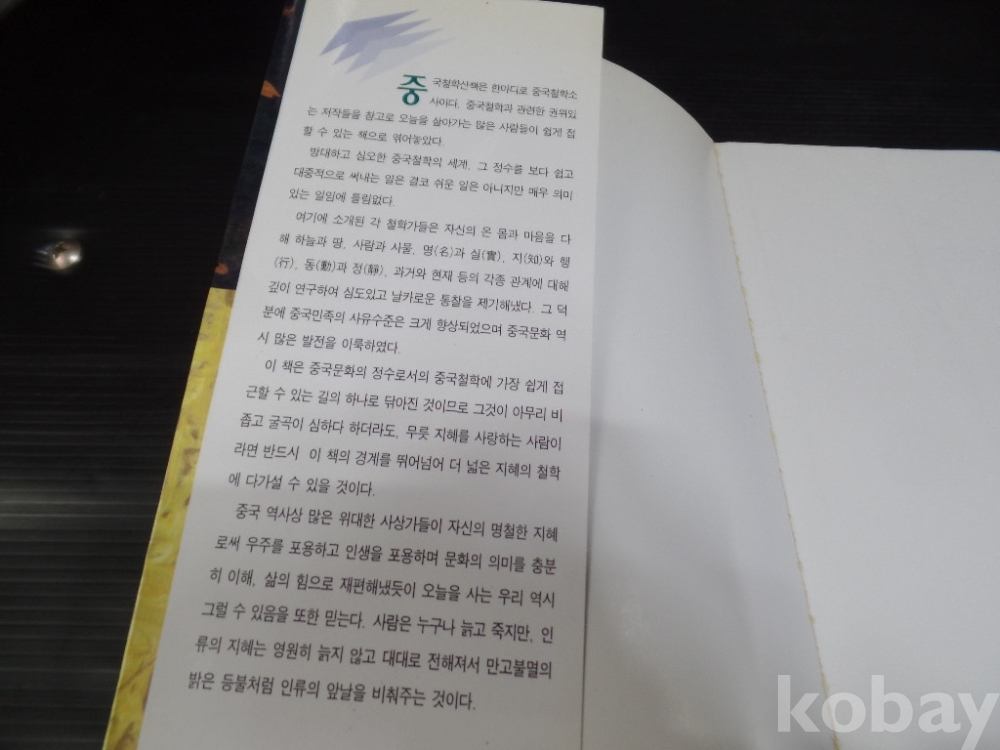 중국철학산책은 한마디로 중국철학소
사이다. 중국철학과 관련한 권위있
는 저작들을 참고로 오늘을 살아가는 많은 사람들이 쉽게 접
할 수 있는 책으로 엮어놓았다.
방대하고 심오한 중국철학의 세계, 그 정수를 보다 쉽고
대중적으로 써내는 일은 결코 쉬운 일은 아니지만 매우 의미
있는 일임에 틀림없다.
여기에 소개된 각 철학가들은 자신의 온 몸과 마음을 다
해 하늘과 땅, 사람과 사물, 명(名)과 실(實), 지(知)와 행
(行), 동(動)과 정(靜), 과거와 현재 등의 각종 관계에 대해
깊이 연구하여 심도있고 날카로운 통찰을 제기해냈다. 그 덕
분에 중국민족의 사유수준은 크게 향상되었으며 중국문화 역
시 많은 발전을 이룩하였다.
이 책은 중국문화의 정수로서의 중국철학에 가장 쉽게 접
근할 수 있는 길의 하나로 닦아진 것이므로 그것이 아무리 비
좁고 굴곡이 심하다 하더라도, 무릇 지혜를 사랑하는 사람이
라면 반드시 이 책의 경계를 뛰어넘어 더 넓은 지혜의 철학
에 다가설 수 있을 것이다.
중국 역사상 많은 위대한 사상가들이 자신의 명철한 지혜
로써 우주를 포용하고 인생을 포용하며 문화의 의미를 충분
히 이해, 삶의 힘으로 재편해냈듯이 오늘을 사는 우리 역시
그럴 수 있음을 또한 믿는다. 사람은 누구나 늙고 죽지만, 인
류의 지혜는 영원히 늙지 않고 대대로 전해져서 만고불멸의
밝은 등불처럼 인류의 앞날을 비춰주는 것이다.
kobay